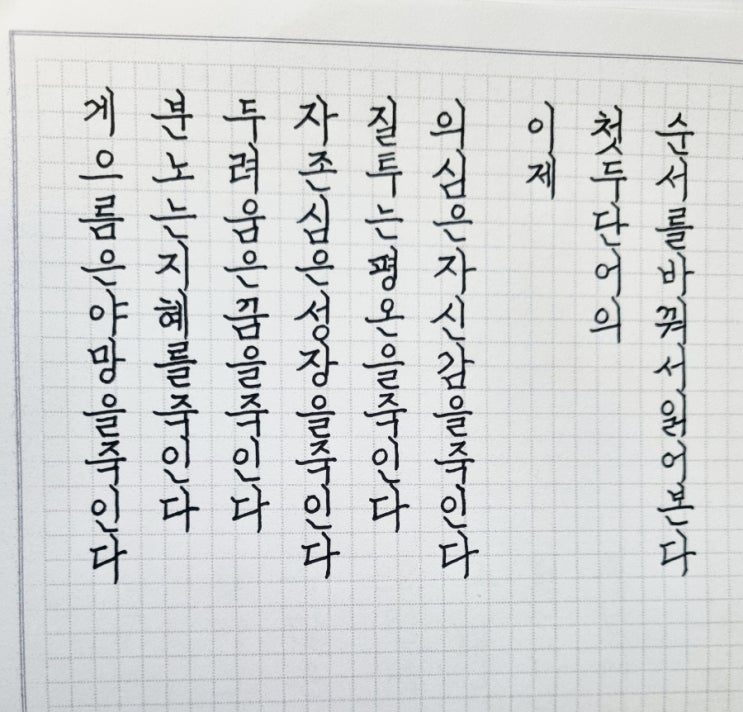 게으름은야망을죽인다
분노는지혜를죽인다
두려움은꿈을죽인다
자존심은성장을죽인다
질투는평온을죽인다
의심은자신감을죽인다
이제
첫두단어의
순서를바꿔서읽어본다